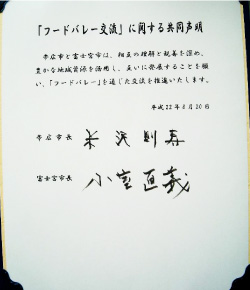 「フードバレー交流」に関する共同声明
帯広市と富士宮市は、相互の理解と親善を深め、
豊かな地域資源を活用し、互いに発展することを願
い、「フードバレー」を通じた交流を推進いたします。
平成22年8月20日
帯広市長 米沢則寿
富士宮市長 小室直義